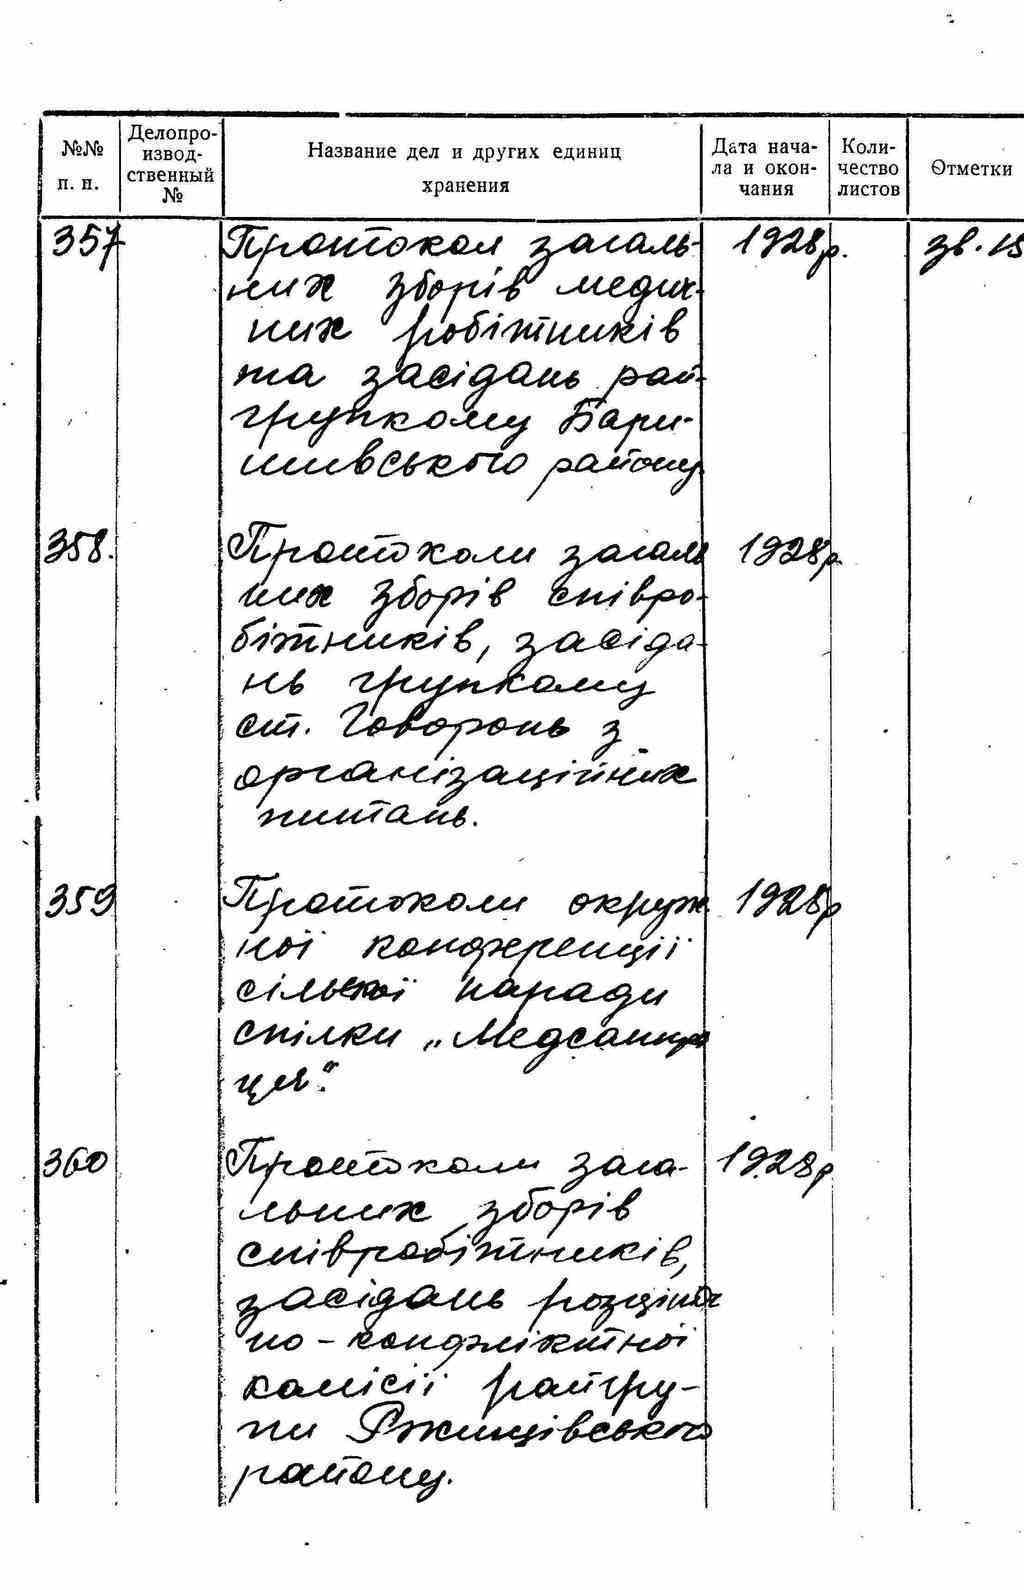 №№ п. п.
Делопро-
извод-
ственный
№
Название дел и других единиц
хранения
Дата нача-
ла и окон-
чания
Коли-
чество
листов
Отметки
357 Протокол загаль- 1928р. зв.
них зборів медич-
них робітників
та засідань рай-
групкому Бари-
шивського району.
358. Протоколи загаль 1928р.
них зборів співро-
бітників, засіда-
нь групкому
ст. Говоронь з
організаційних
питань.
359 Протоколи окруж 1928р
ної конференції
сільської наради
спілки „Медсанпра
ця".
360 Протоколи зага- 1928р
льних зборів
співробітників,
засідань розціноч
но-конфліктної
комісії райгру-
пи Ржищівського
району.